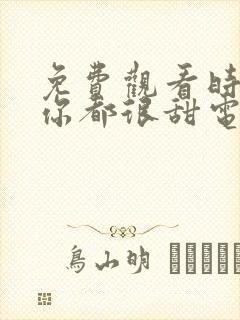 免費觀看時
你都很甜電
鳥山明